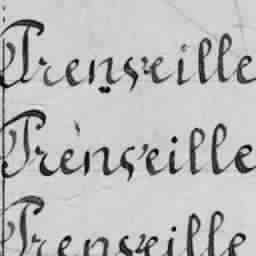 Trenseille
Trenseille
Trenseille